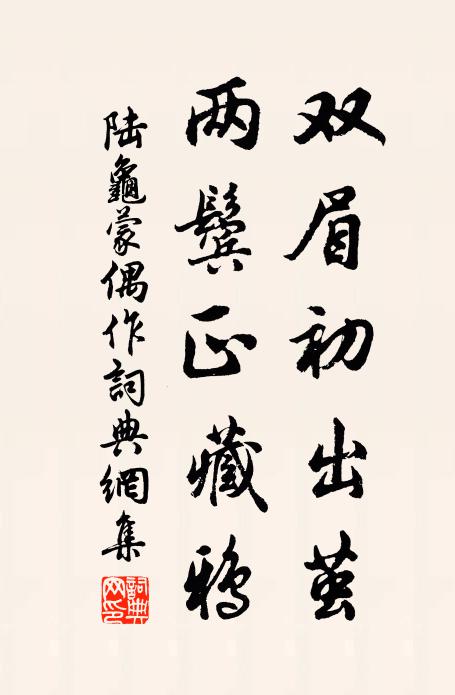 双眉初出茧
两鬓正藏鸦
陆龜蒙偶作詞典網集
詞典網印